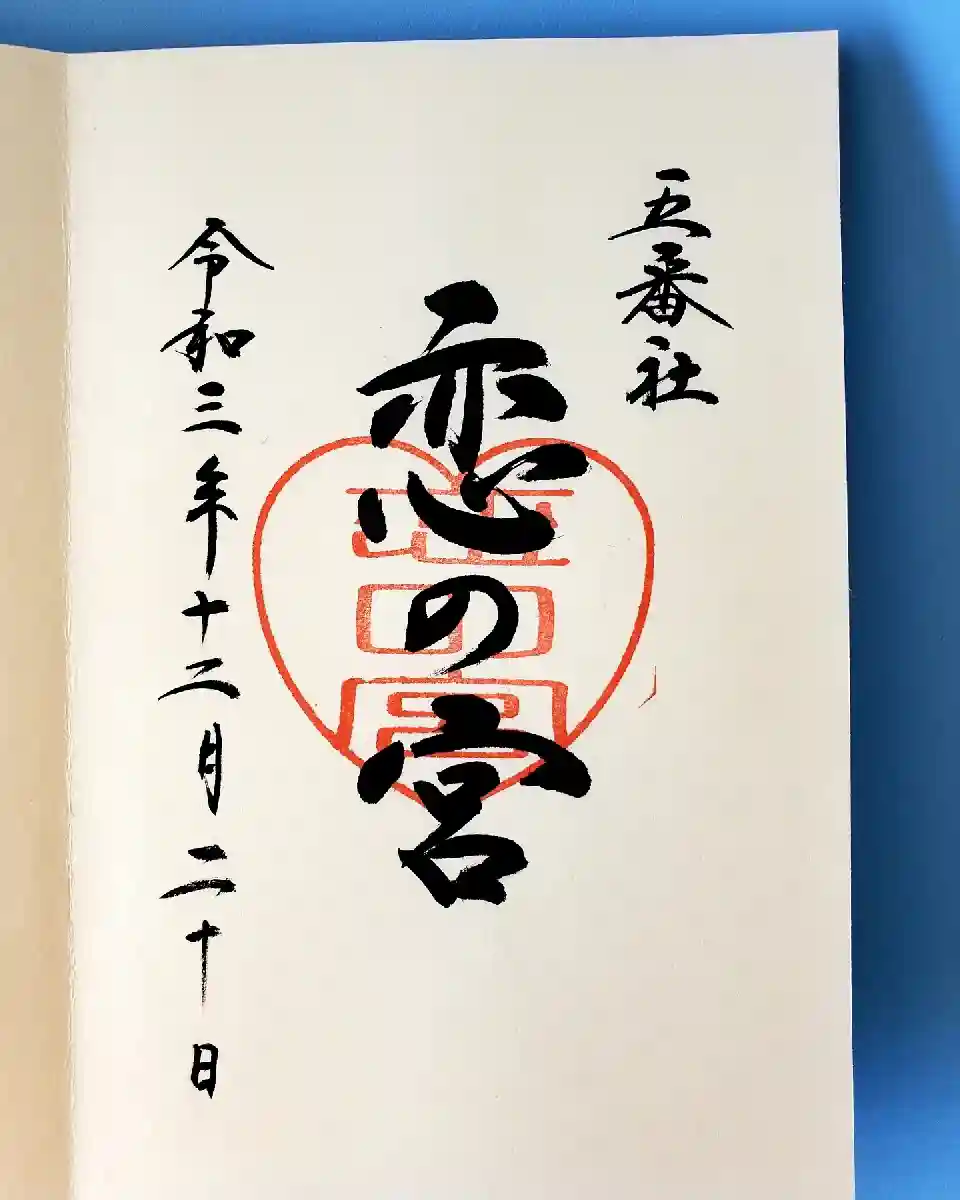 五番社
恋の宮
令和三年十二月二十日